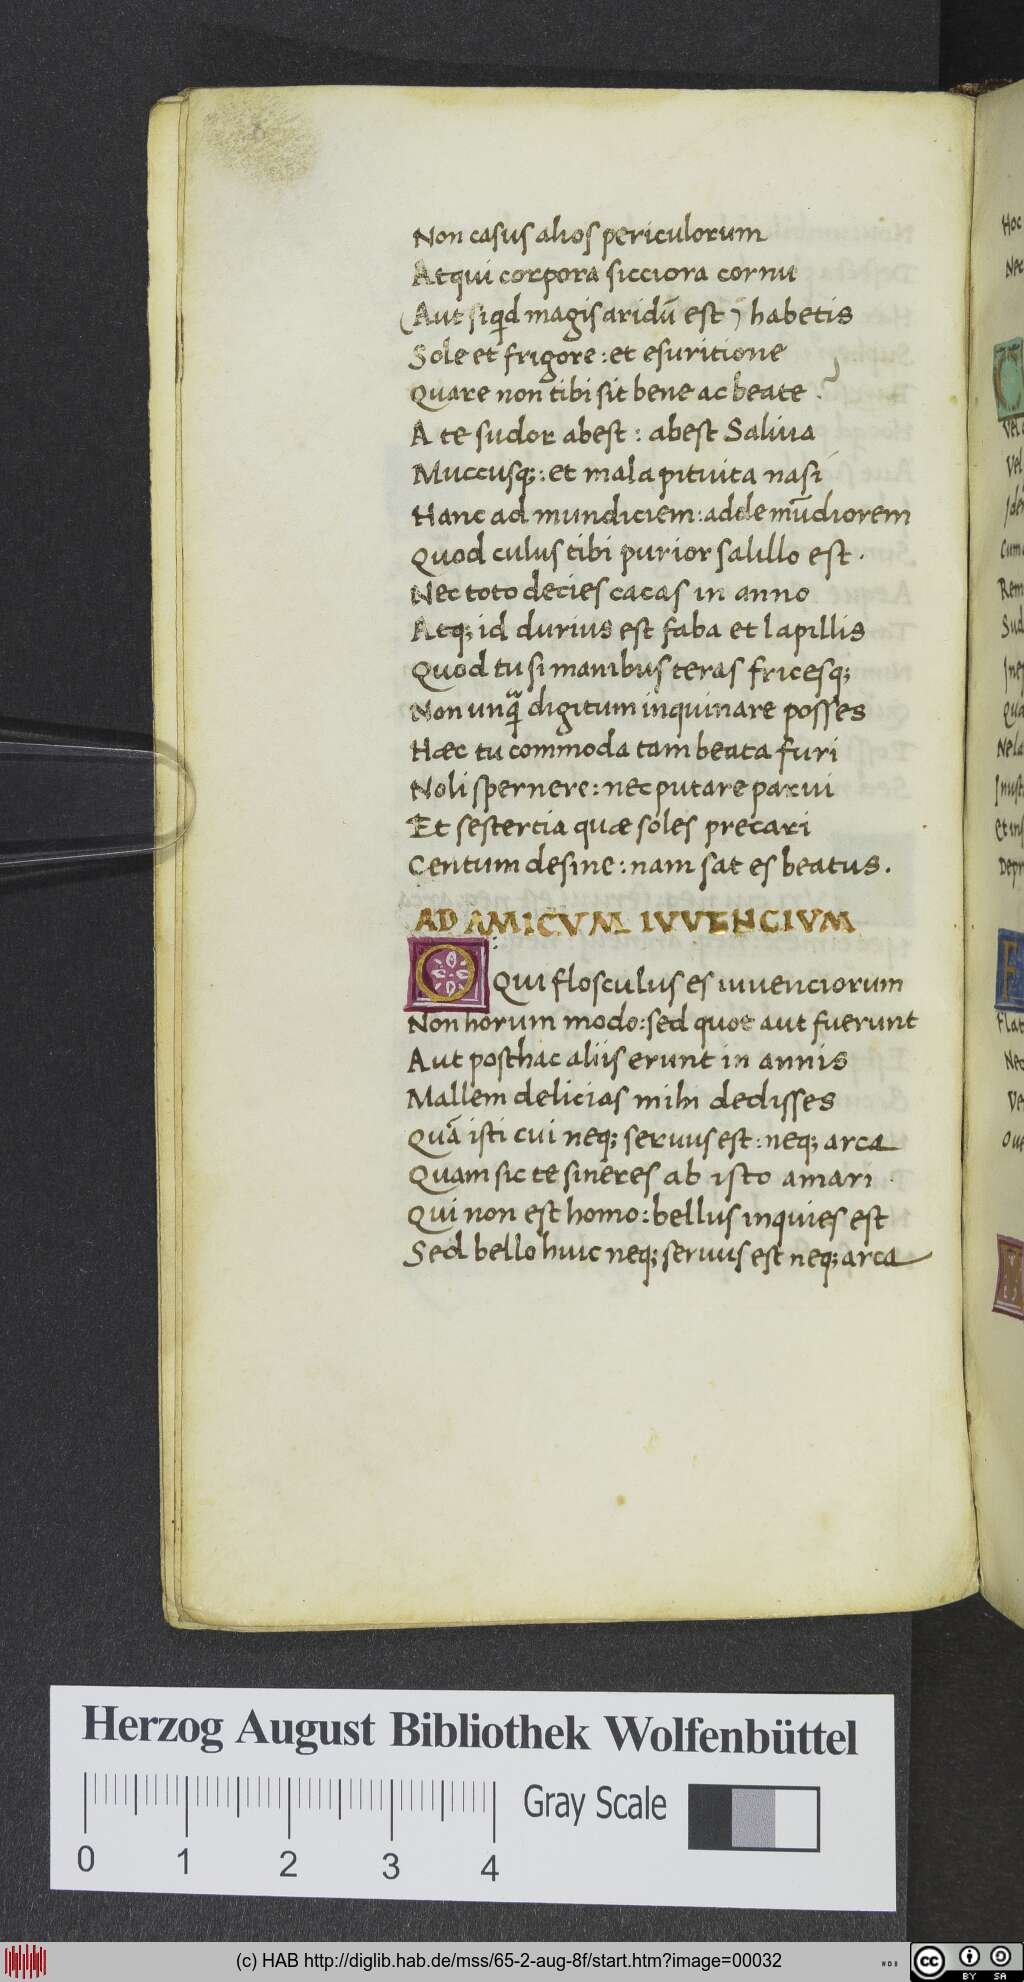 Non casus alios periculorum
Atqui corpora sicciora cornu
(Aut siqd magis aridū est) habetis
Sole et frigore: et esuritione
Quare non tibi sit bene ac beate
A te sudor abest: abest Saliua
Muccusq;: et mala pituita nasi
Hanc ad mundiciem: adde mūdiorem
Quod culus tibi purior salillo est.
Nec toto decies cacas in anno
Atq; id durius est faba et lapillis
Quod tu si manibus teras fricesq;
Non unq̃ digitum inquinare posses
Hæc tu commoda tam beata furi
Noli spernere: nec putare parui
Et sestertia quæ soles precari
Centum desine: nam sat es beatus.
AD AMICVM IVVENCIVM
O Qui flosculus es iuuenciorum
Non horum modo: sed quot aut fuerunt
Aut posthac aliis erunt in annis
Mallem delicias mihi dedisses
Quā isti cui neq; seruus est: neq; arca
Quam sic te sineres ab isto amari
Qui non est homo: bellus inquies est
Sed bello huic neq; seruus est neq; arca
Hoc
Nec
Vel
Vel
Cum
Rem
Sud
Inep
Qua
Ne la
Inust
Et ins
Depr
F
Flat
Nec
Ve
Herzog August Bibliothek Wolfenbüttel
Gray Scale
0 1 2 3 4
(c) HAB http://diglib.hab.de/mss/65-2-aug-8f/start.htm?image=00032
cc BY SA